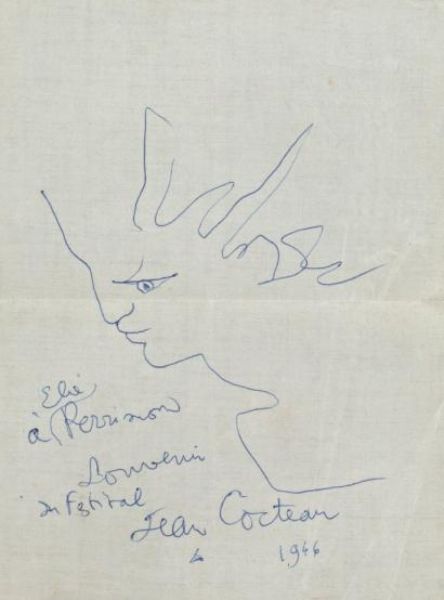 à Elie Perrimon
Souvenir
du Festival
Jean Cocteau
1946